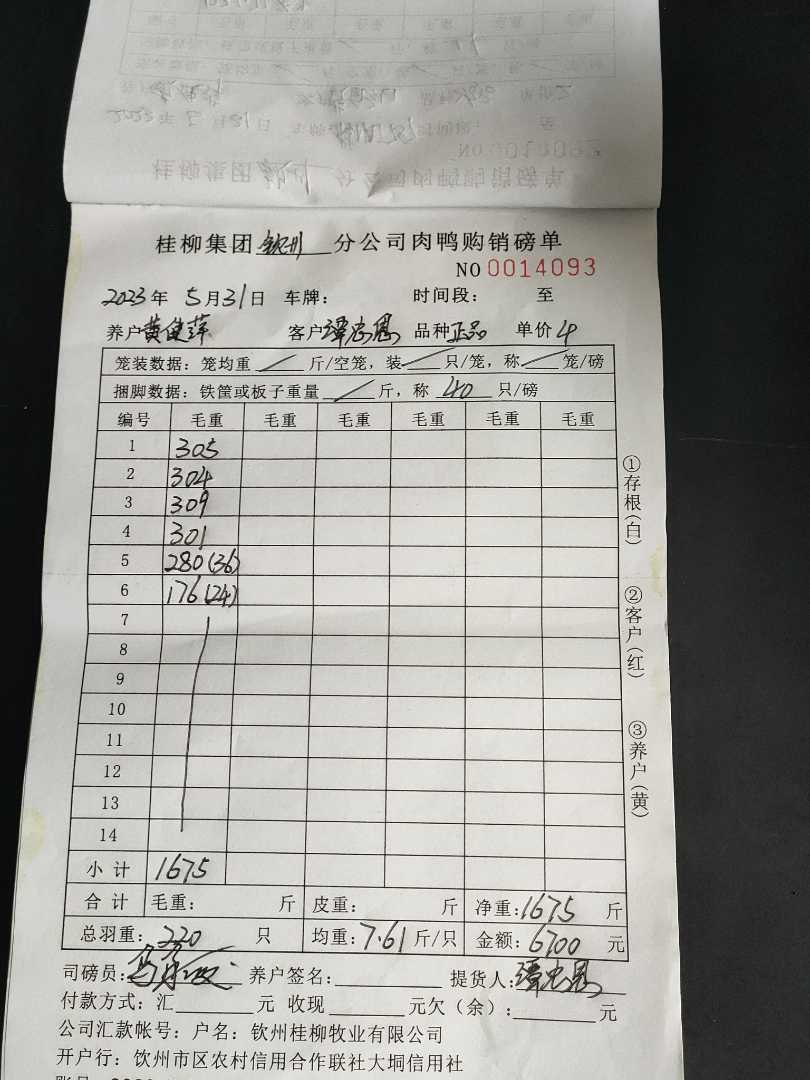 桂柳集团钦州分公司肉鸭购销磅单
NO 0014093
2023年 5月31日 车牌： 时间段： 至
养户黄健萍 客户谭忠恩 品种正品 单价4
笼装数据：笼均重 / 斤/空笼，装 / 只/笼，称 / 笼/磅
捆脚数据：铁筐或板子重量 / 斤，称 40 只/磅
编号 毛重 毛重 毛重 毛重 毛重 毛重
1 305
2 304
3 309
4 301
5 280(36)
6 176(24)
7
8
9
10
11
12
13
14
小计 1675
合计 毛重： 斤 皮重： 斤 净重：1675 斤
总羽重：220 只 均重：7.61 斤/只 金额：6700 元
司磅员： 养户签名： 提货人：谭忠恩
付款方式：汇 元 收现 元欠（余）： 元
公司汇款帐号：户名：钦州桂柳牧业有限公司
开户行：钦州市区农村信用合作联社大垌信用社
①存根(白)
②客户(红)
③养户(黄)